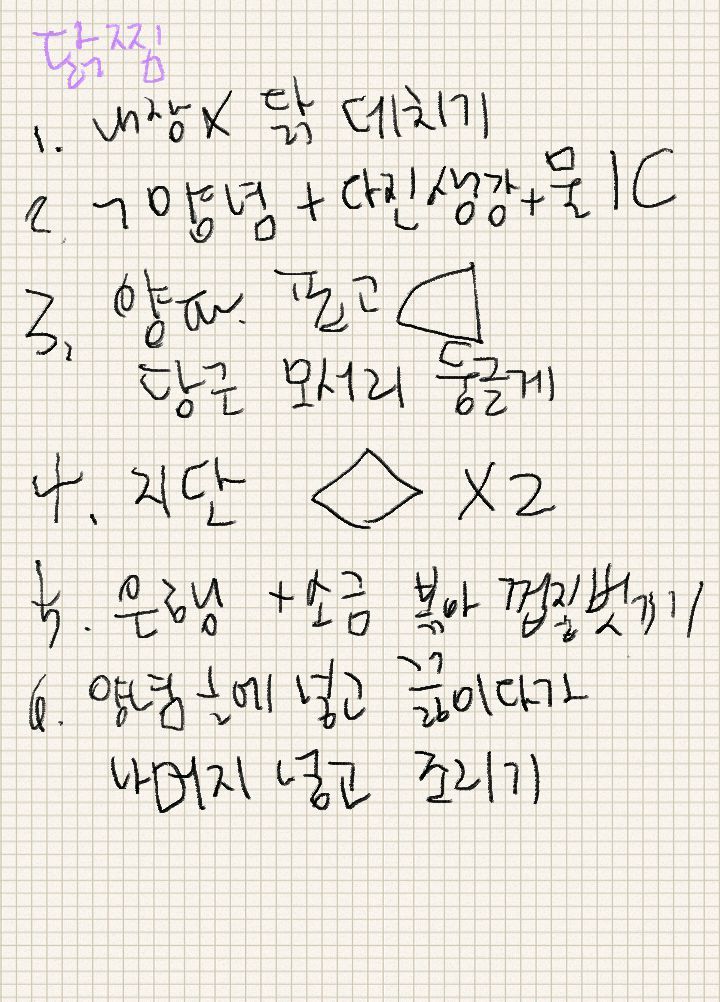 닭찜
1. 내장X 닭 데치기
2. ㄱ양념 + 다진생강+물1C
3. 양파. 표고
당근 모서리 둥글게
4. 지단 X2
5. 은행 +소금 볶아 껍질벗기기
6. 양념 1/2에 넣고 끓이다가
나머지 넣고 조리기